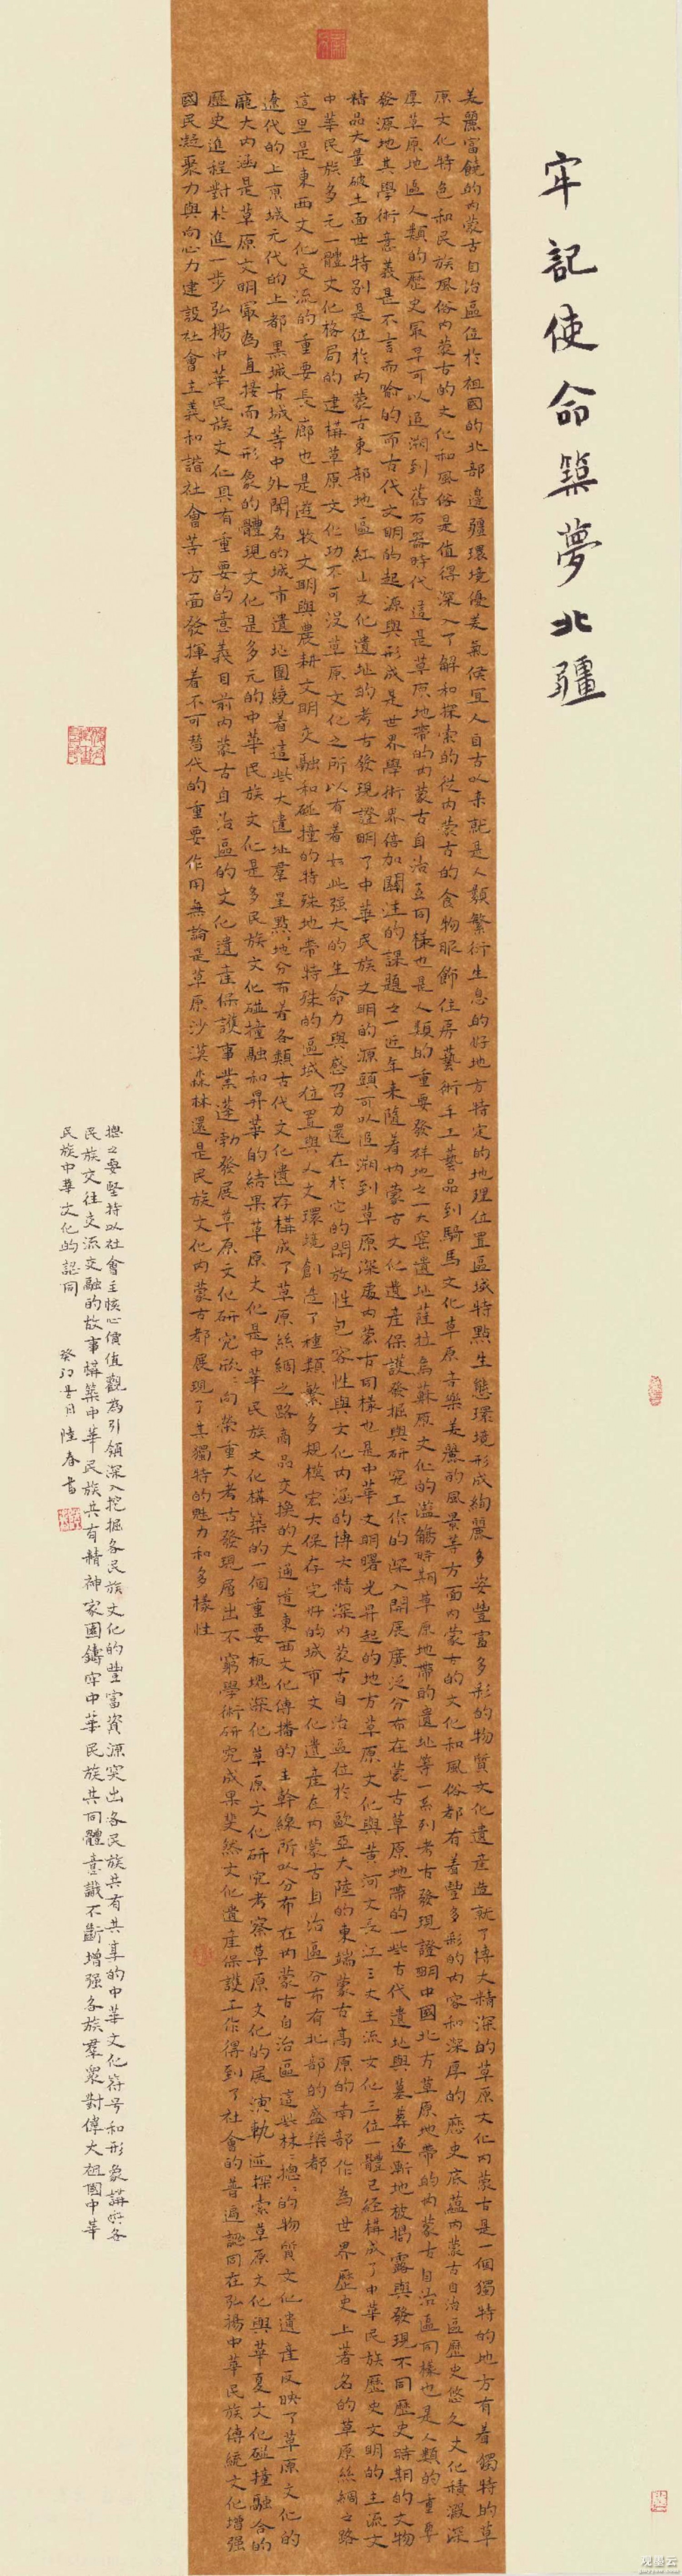 牢記使命築夢北疆
美麗富饒的內蒙古自治區位於祖國的北部邊疆環境優美氣候宜人自古以來就是人類繁衍生息的好地方特定的地理位置區域特點生態環境形成絢麗多姿豐富多彩的物質文化遺產造就了博大精深的草原文化內蒙古是一個獨特的地方有着獨特的草
原文化特色和民族風俗內蒙古的文化和風俗是值得深入了解和探索的從內蒙古的食物服飾住房藝術手工藝品到騎馬文化草原音樂美麗的風景等方面內蒙古的文化和風俗都有着豐多彩的內容和深厚的歷史底蘊內蒙古自治區歷史悠久文化積澱深
厚草原地區人類的歷史最早可以追溯到舊石器時代這是草原地帶的內蒙古自治區同樣也是人類的重要發祥地之一大窰遺址薩拉烏蘇原文化的濫觴時期草原地帶的遺址等一系列考古發現證明中國北方草原地帶的內蒙古自治區同樣也是人類的重要
發源地其學術意義是不言而喻的而古代文明的起源與形成是世界學術界倍加關注的課題之一近年來隨着內蒙古文化遺產保護發掘與研究工作的深入開展廣泛分布在蒙古草原地帶的一些古代遺址與墓葬逐漸地被揭露與發現不同歷史時期的文物
精品大量破土面世特别是位於內蒙古東部地區紅山文化遺址的考古發現證明了中華民族文明的源頭可以追溯到草原深處內蒙古同樣也是中華文明曙光昇起的地方草原文化與黃河文長江三大主流文化三位一體已經構成了中華民族歷史文明的主流文
中華民族多元一體文化格局的建構草原文化功不可没草原文化之所以有着如此强大的生命力與感召力還在於它的開放性包容性與文化内涵的博大精深內蒙古自治區位於歐亞大陸的東端蒙古高原的南部作為世界歷史上著名的草原絲綢之路
這里是東西文化交流的重要長廊也是遊牧文明與農耕文明交融和碰撞的特殊地帶特殊的區域位置與人文環境創造了種類繁多規模宏大保存完好的城市文化遺產在內蒙古自治區分布有北部的盛樂都
遼代的上京城元代的上都黑城古城等中外聞名的城市遺址圍繞着這些大遺址羣星點地分布着各類古代文化遺存構成了草原絲綢之路商品交換的大通道東西文化傳播的主幹線所以分布在內蒙古自治區這些林林總總的物質文化遺產反映了草原文化的
龐大内涵是草原文明最為直接而又形象的體現文化是多元的中華民族文化是多民族文化碰撞融和昇華的結果草原文化是中華民族文化構築的一個重要板塊深化草原文化研究考察草原文化的展演軌迹探索草原文化與華夏文化碰撞融合的
歷史進程對於進一步弘揚中華民族文化具有重要的意義目前內蒙古自治區的文化遺產保護事業蓬勃發展草原文化研究欣欣向榮重大考古發現層出不窮學術研究成果斐然文化遺產保護工作得到了社會的普遍認同在弘揚中華民族傳統文化增强
國民凝聚力與向心力建設社會主義和諧社會等方面發揮着不可替代的重要作用無論是草原沙漠森林還是民族文化內蒙古都展現了其獨特的魅力和多樣性
總之要堅持以社會主核心價值觀為引領深入挖掘各民族文化的豐富資源突出各民族共有共享的中華文化符号和形象講好各
民族交往交流交融的故事構築中華民族共有精神家園鑄牢中華民族共同體意識不斷增强各族羣衆對偉大祖國中華
民族中華文化的認同 癸卯 月陸春書
觀墨云